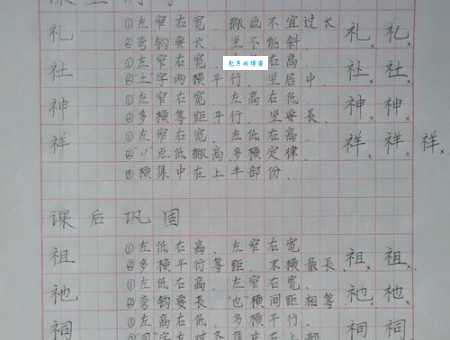 礼 ①左窄右宽、撇画不宜过长 礼、礼、
②弯钩要长、
社 ①左窄右宽、 右高 社、社、
②土字两横平行、竖居中、
包月的博客
神 ①左窄右宽、左高右低 神、神、
②多横等距平行、竖要长、
祥 ①左窄右宽、左低右高、 祥、祥、祥、
②"丷"点低撇高多横定律、
③横集中在上半部份、
课后巩固
祖 ①左低右高、左窄右宽 祖、祖、
②多横平行等距、末横最长、
祂 ①左低右高、左窄右宽、 祂、祂、
②弯钩要长、"也"横间距相等
祠 ①左高右低、多横平行、 祠、祠、